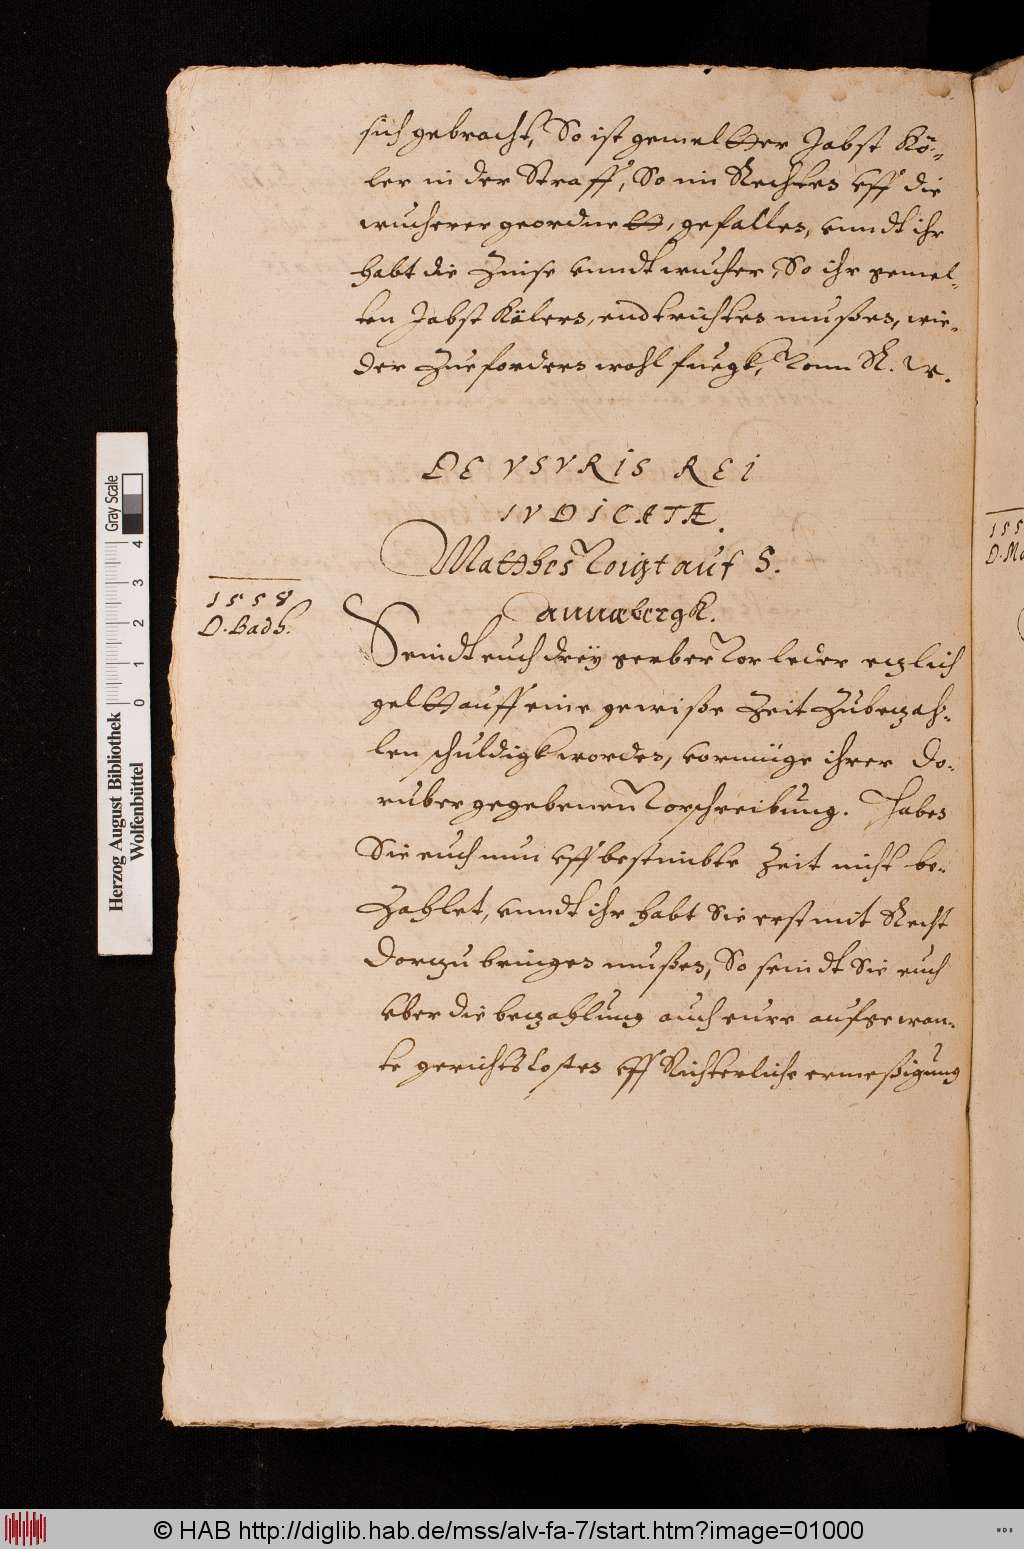 sich gebracht, So ist gemeltter Jabst Kö-
ler in der Straff, So im Rechten vff die
wucherer geordnett, gefallen, vnndt ihr
habt die Zinse vnndt wucher, So ihr gemel-
ten Jabst Kölern, endtrichten mußen, wie-
der Zuefordern wohl fuegk, Vonn R. W.
DE VSVRIS REI
IVDICATÆ.
Matthes Voigt auf S.
Annabergk.
1558
D. Badh.
Seindt euch dreÿ gerber vor leder etzlich
geltt auff eine gewiße Zeit Zubezah-
len schuldigk worden, vormüge ihrer do-
ruber gegebenen Vorschreibung. Haben
Sie euch nun vff bestimbte Zeit nicht be-
Zahlet, vnndt ihr habt Sie erst mit Recht
dorzu bringen mußen, So seindt Sie euch
vber die bezahlung auch eure aufgewan-
te gerichtskosten vff Richterliche ermeßigung
155
D. Ma
Herzog August Bibliothek
Wolfenbüttel
0 1 2 3 4
Gray Scale
© HAB http://diglib.hab.de/mss/alv-fa-7/start.htm?image=01000